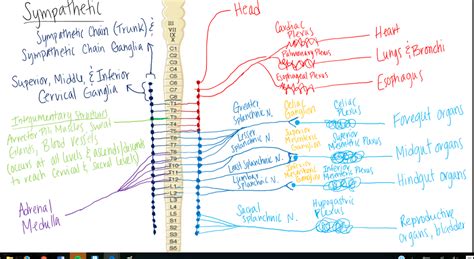 Sympathetic
Sympathetic Chain (Trunk) &
Sympathetic Chain Ganglia
Superior, Middle, & Inferior
Cervical Ganglia
Integumentary Structures
Arrector Pili Muscles, Sweat
Glands, Blood Vessels
(occurs at all levels & ascends/descends
to reach cervical & sacral levels)
Adrenal
Medulla
III
VII
IX
X
C1
C2
C3
C4
C5
C6
C7
C8
T1
T2
T3
T4
T5
T6
T7
T8
T9
T10
T11
T12
L1
L2
L3
L4
L5
S1
S2
S3
S4
S5
Head
Cardiac
Plexus
Heart
Pulmonary Plexus
Lungs & Bronchi
Esophageal Plexus
Esophagus
Greater
Splanchnic N.
Celiac
Ganglion
Celiac
Plexus
Foregut Organs
Lesser
Splanchnic N.
Superior
Mesenteric
Ganglion
Superior
Mesenteric Plexus
Midgut organs
Least Splanchnic N.
Lumbar
Splanchnic N.
Inferior
Mesenteric
Ganglion
Inferior
Mesenteric Plexus
Hindgut organs
Sacral
Splanchnic N.
Hypogastric
Plexus
Reproductive
organs, bladder